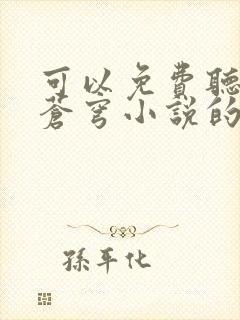 可以免費聽
蒼穹小說的
孫平化